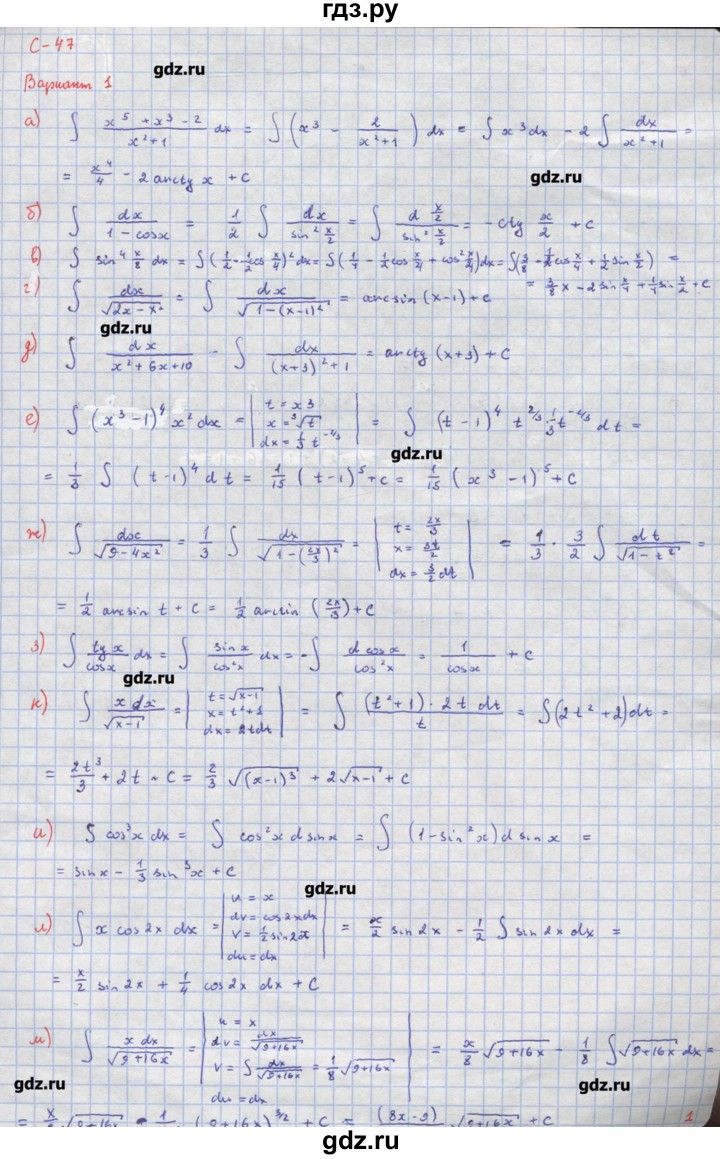 гдз.ру
С-47
gdz.ru
Вариант 1
gdz.ru
а) ∫ (x⁵ + x³ - 2)/(x²+1) dx = ∫ (x³ - 2/(x²+1)) dx = ∫ x³dx - 2 ∫ dx/(x²+1) =
= x⁴/4 - 2 arctg x + C
gdz.ru
б) ∫ dx/(1 - cosx) = 1/2 ∫ dx/(sin² x/2) = ∫ (d x/2)/(sin² x/2) = -ctg x/2 + C
в) ∫ sin⁴ x/8 dx = ∫ (1/2 - 1/2 cos x/4)² dx = ∫ (1/4 - 1/2 cos x/4 + cos² x/4) dx = ∫(3/8 - 1/2 cos x/4 + 1/2 sin x/2) =
= 3/8 x - 2 sin x/4 + 1/4 sin x/2 + C
г) ∫ dx/√(2x - x²) = ∫ dx/√(1-(x-1)²) = arcsin (x-1) + C
gdz.ru
д) ∫ dx/(x²+6x+10) - ∫ dx/((x+3)²+1) = arctg (x+3) + C
е) ∫ (x³-1)⁴ x² dx = | t = x3
x = ³√t
dx = 1/3 t^(-2/3) | = ∫ (t-1)⁴ t^(2/3) · 1/3 t^(-2/3) dt =
gdz.ru
= 1/3 ∫ (t-1)⁴ dt = 1/15 (t-1)⁵ + C = 1/15 (x³-1)⁵ + C
gdz.ru
ж) ∫ dx/√(9-4x²) = 1/3 ∫ dx/√(1-(2x/3)²) = | t = 2x/3
x = 3t/2
dx = 3/2 dt | = 1/3 · 3/2 ∫ dt/√(1-t²) =
= 1/2 arcsin t + C = 1/2 arcsin (2x/3) + C
gdz.ru
з) ∫ tg x/cosx dx = ∫ sin x/cos²x dx = -∫ d cosx/cos²x = 1/cosx + C
gdz.ru
к) ∫ x dx/√(x-1) = | t = √(x-1)
x = t²+1
dx = 2tdt | = ∫ ((t²+1)·2t dt)/t = ∫(2t²+2)dt =
gdz.ru
= 2t³/3 + 2t + C = 2/3 √((x-1)³) + 2√(x-1) + C
и) ∫ cos³x dx = ∫ cos²x d sinx = ∫ (1-sin²x) d sin x =
= sinx - 1/3 sin³x + C
gdz.ru
л) ∫ x cos 2x dx = | u = x
dv = cos2xdx
v = 1/2 sin2x
du = dx | = x/2 sin 2x - 1/2 ∫ sin 2x dx =
gdz.ru
= x/2 sin 2x + 1/4 cos 2x dx + C
м) ∫ x dx/√(9+16x) = | u = x
dv = dx/√(9+16x)
v = ∫ dx/√(9+16x) = 1/8 √(9+16x)
du = dx | = x/8 √(9+16x) - 1/8 ∫ √(9+16x) dx =
gdz.ru
gdz.ru
(9+16x)^(3/2) + C = (8x-9) √(9+16x) + C
1
gdz.ru